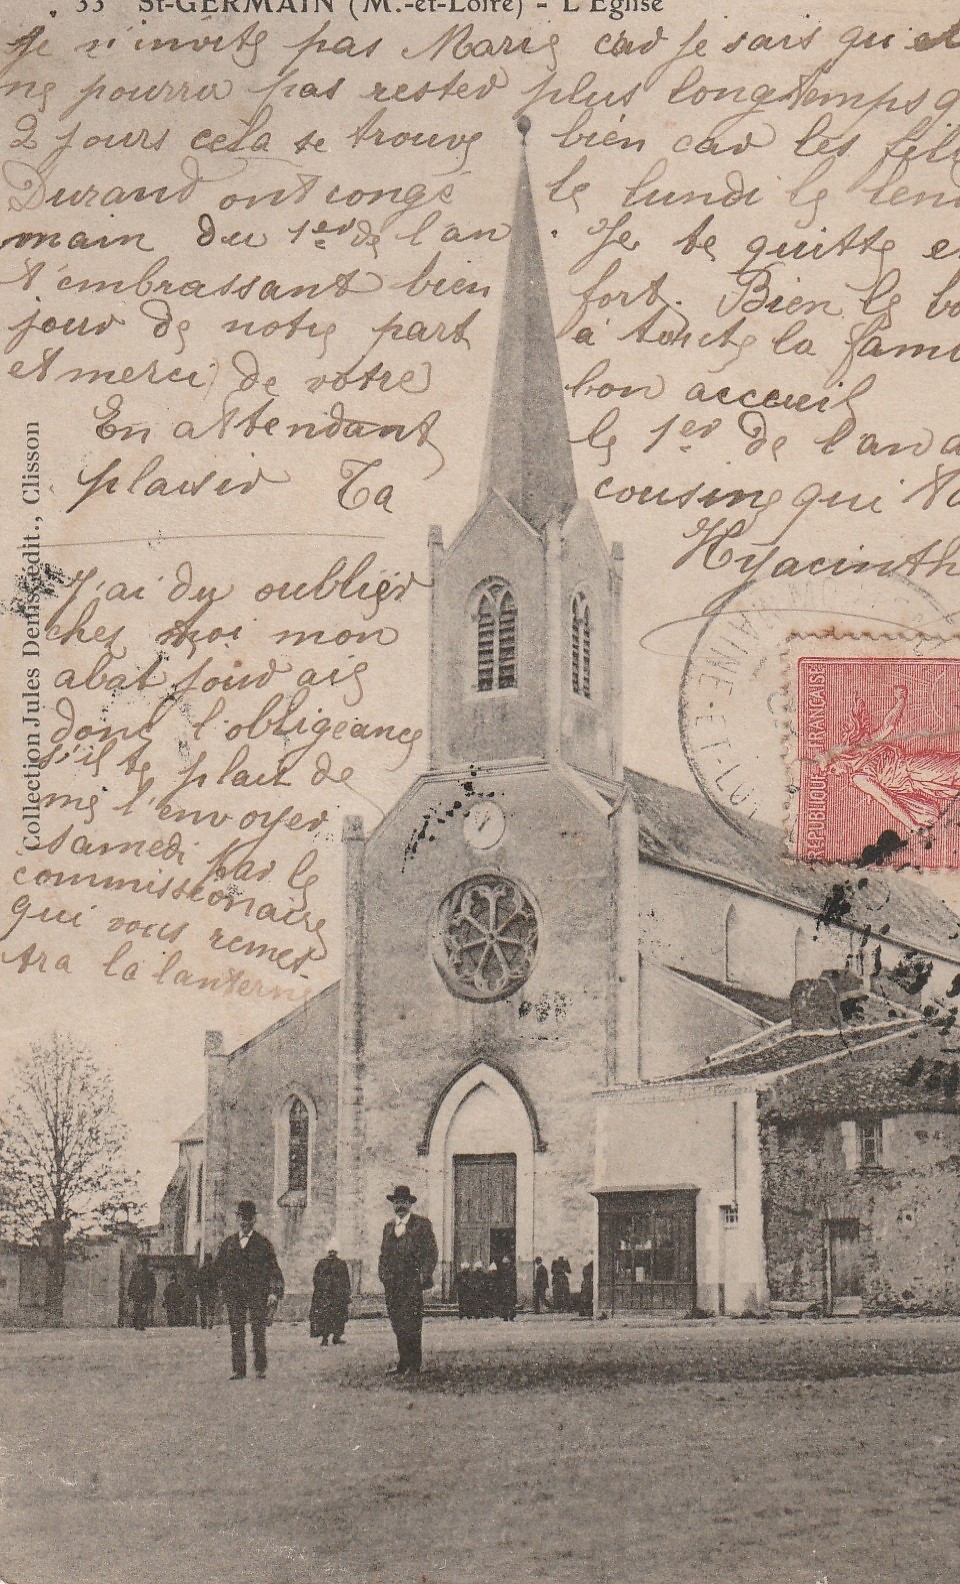 33 St-GERMAIN (M.-et-Loire) - L'Eglise
Je n'invite pas Marie car je sais qu'el
ne pourra pas rester plus longtemps q
2 jours cela se trouve bien car les fill
Durand ont congé le lundi le lend
main du 1er de l'an. Je te quitte en
t'embrassant bien fort. Bien le bo
jour de notre part à toute la fami
et merci de votre bon accueil
En attendant le 1er de l'an a
plaisir Ta cousine qui t'a
Hyacinth
J'ai du oublier
chez toi mon
abat jour aie
donc l'obligeance
s'il te plait de
me l'envoyer
samedi par le
commissionaire
qui vous remet-
tra la lanterne
Collection Jules Denis, édit., Clisson
REPUBLIQUE FRANÇAISE
MAINE-ET-LOIRE